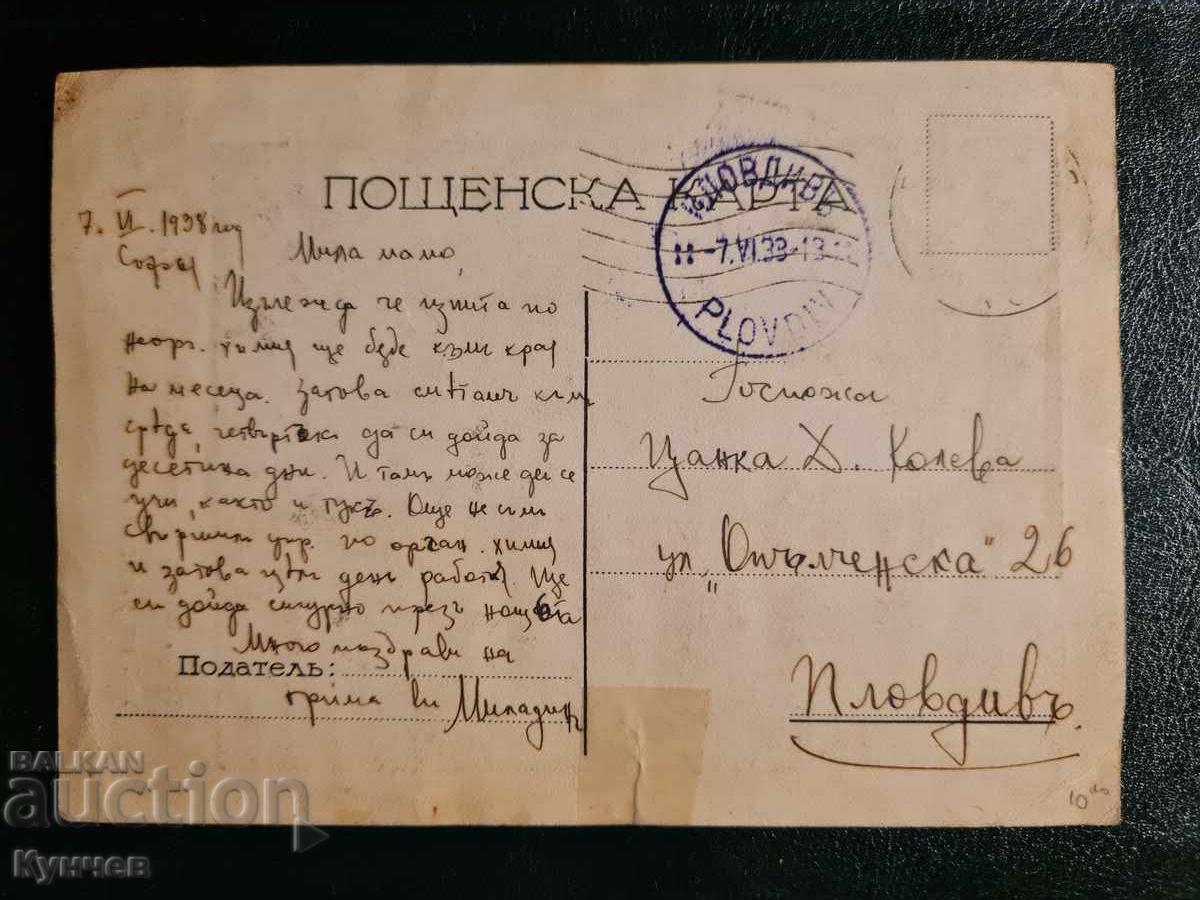 ПОЩЕНСКА КАРТА
ПЛОВДИВЪ
7.VI.38-18
PLOVDIV
7. VI. 1938 год
София
Мила мамо,
Изглежда че изпита по
неорг. химия ще бѫде към края
на месеца. Затова смѣтамъ към
срѣда, четвъртъкъ да си дойда за
десетина дни. И тамъ може да се
учи, както и тукъ. Още не съмъ
свършилъ упр. по орган. химия
и затова цѣлъ день работя. Ще
си дойда сигурно презъ нощьта
Много поздрави на
Податель:
ви Миладинъ
Госпожа
Цанка Х. Колева
ул. „Опълченска" 26
Пловдивъ.
10
BALKAN
auction
Кунчев